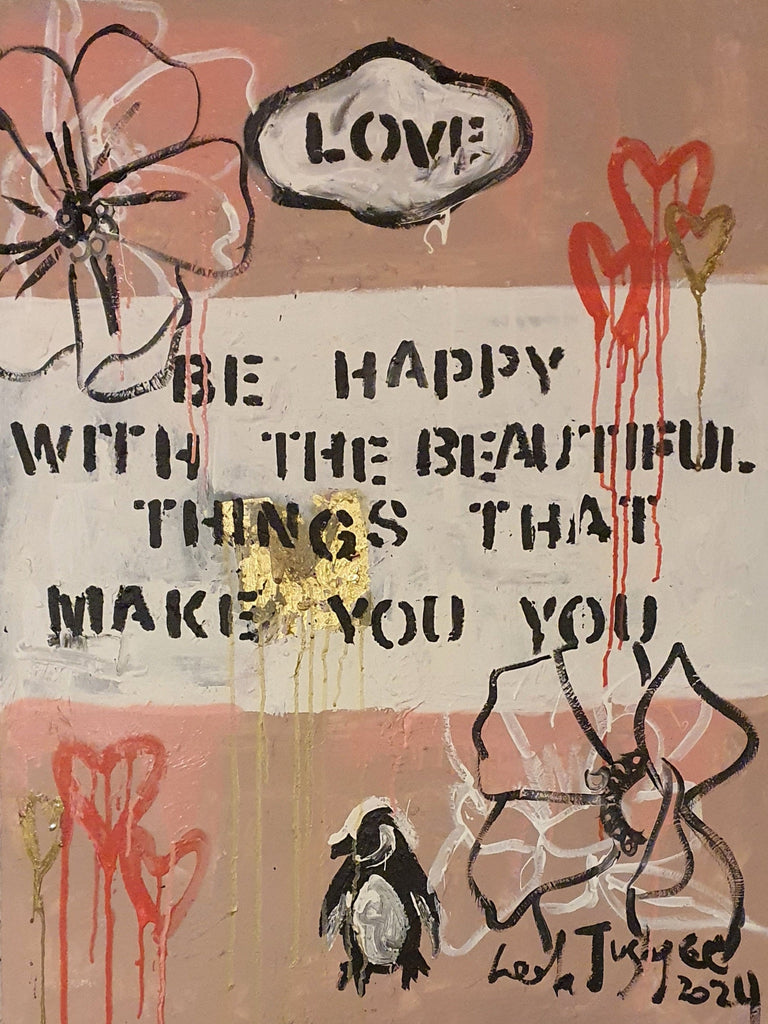 LOVE
BE HAPPY
WITH THE BEAUTIFUL
THINGS THAT
MAKE YOU YOU
2024